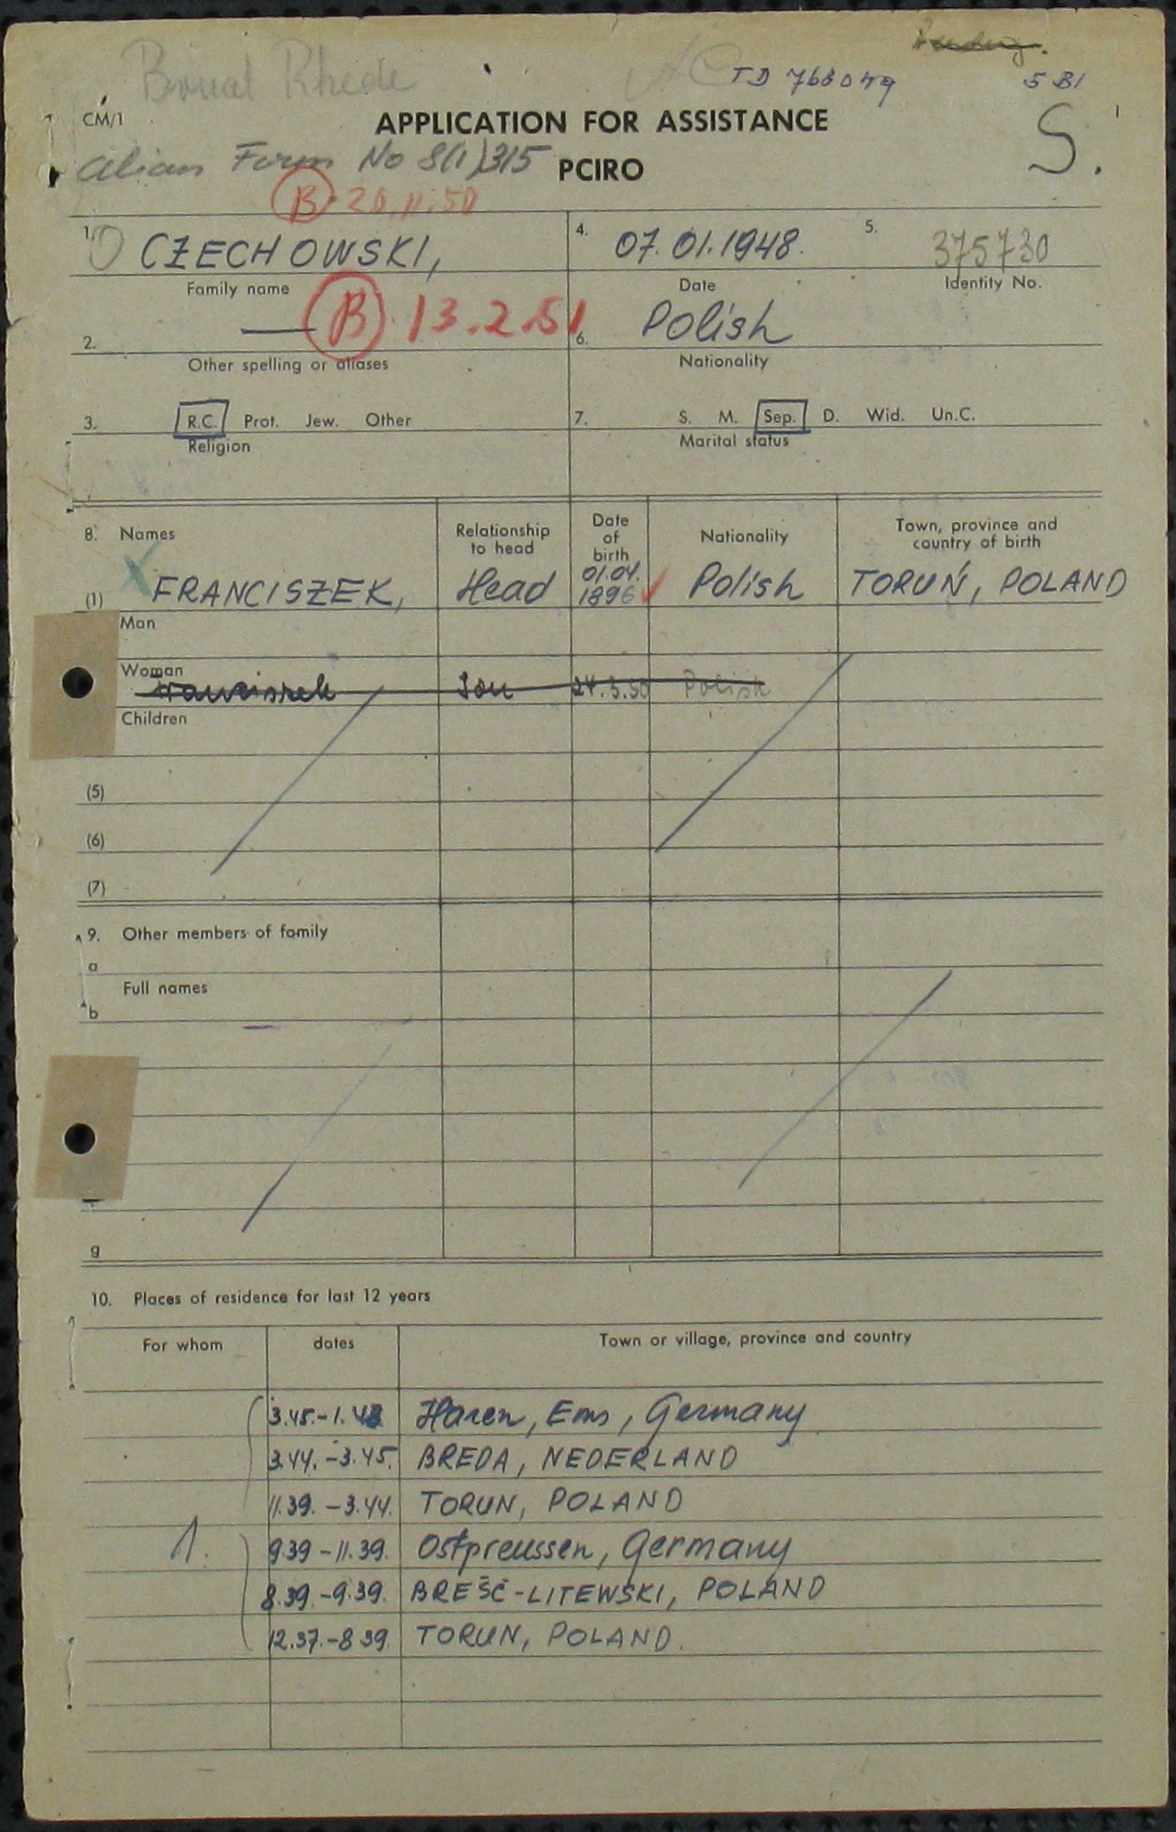 TD 763079
5 B1
CM/1
APPLICATION FOR ASSISTANCE
S.
Form No 8(1)315
PCIRO
B 20.11.50
1. CZECHOWSKI,
4. 07.01.1948.
5. 375730
Family name
Date
Identity No.
B 13.2.51
2. —
6. Polish
Other spelling or aliases
Nationality
3. R.C. Prot. Jew. Other
7. S. M. Sep. D. Wid. Un.C.
Religion
Marital status
8. Names
Relationship to head
Date of birth
Nationality
Town, province and country of birth
(1) FRANCISZEK, Head 01.04.1896 Polish TORUŃ, POLAND
Man
Woman
Franciszek Son 24.3.50 Polish
Children
(5)
(6)
(7)
9. Other members of family
a
Full names
b
g
10. Places of residence for last 12 years
For whom dates Town or village, province and country
3.45.-1.48 Haren, Ems, Germany
3.44.-3.45. BREDA, NEDERLAND
11.39.-3.44. TORUN, POLAND
1. 9.39-11.39. Ostpreussen, Germany
8.39.-9.39. BREŚĆ-LITEWSKI, POLAND
12.37.-8.39. TORUN, POLAND.